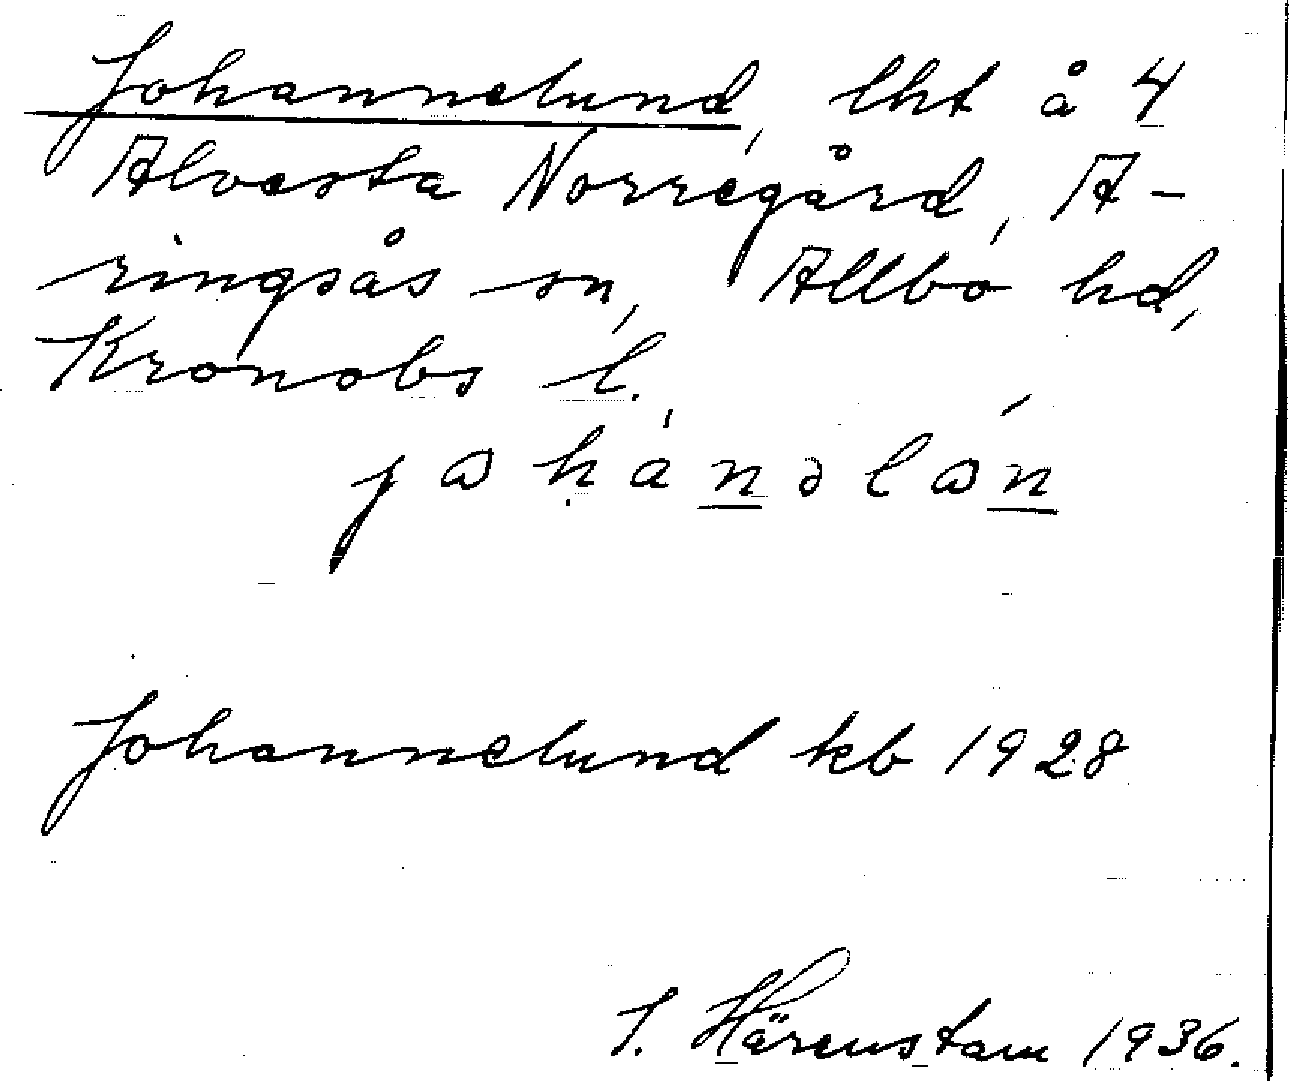 Johannelund, lht å 4
Alvesta Norregård, A-
ringsås sn, Allbo hd,
Kronobs l.
Johannelund kb 1928
I. Härenstam 1936.